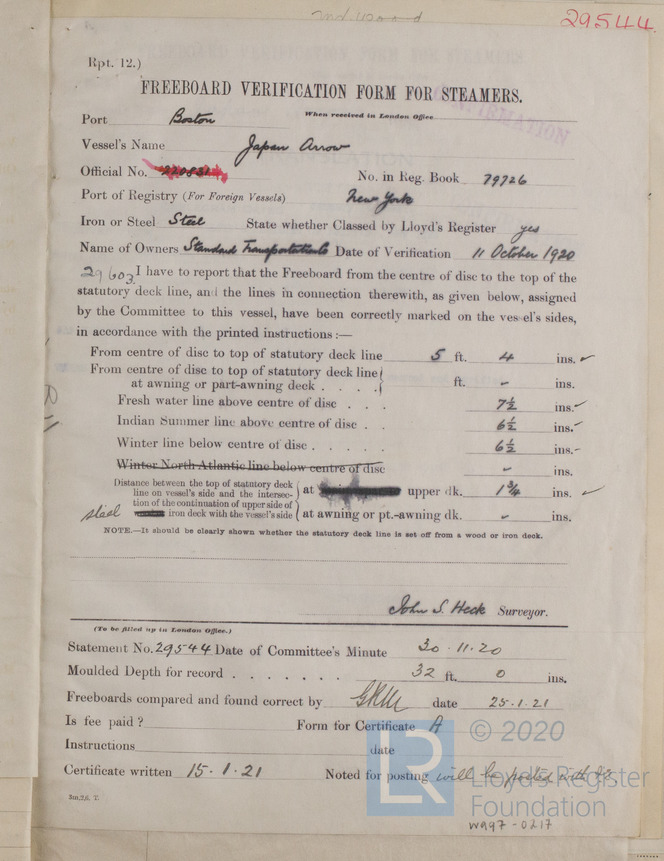 29544
Rpt. 12.)
FREEBOARD VERIFICATION FORM FOR STEAMERS.
Port Boston When received in London Office
Vessel's Name Japan Arrow
Official No. No. in Reg. Book 79726
Port of Registry (For Foreign Vessels) New York
Iron or Steel Steel State whether Classed by Lloyd's Register yes
Name of Owners Standard Date of Verification 11 October 1920
29603 I have to report that the Freeboard from the centre of disc to the top of the
statutory deck line, and the lines in connection therewith, as given below, assigned
by the Committee to this vessel, have been correctly marked on the vessel's sides,
in accordance with the printed instructions :—
From centre of disc to top of statutory deck line 5 ft. 4 ins. ✓
From centre of disc to top of statutory deck line
at awning or part-awning deck . . . . ft. - ins.
Fresh water line above centre of disc . . . 7½ ins. ✓
Indian Summer line above centre of disc . . 6½ ins. ✓
Winter line below centre of disc . . . . . 6½ ins. -
Winter North Atlantic line below centre of disc - ins.
Distance between the top of statutory deck
line on vessel's side and the intersec-
tion of the continuation of upper side of
steel iron deck with the vessel's side
at upper dk. 1¾ ins. ✓
at awning or pt.-awning dk. - ins.
NOTE.—It should be clearly shown whether the statutory deck line is set off from a wood or iron deck.
John S. Heck Surveyor.
(To be filled up in London Office.)
Statement No. 29544 Date of Committee's Minute 30.11.20
Moulded Depth for record . . . . . . . 32 ft. 0 ins.
Freeboards compared and found correct by date 25.1.21
Is fee paid ? Form for Certificate A
Instructions date
Certificate written 15.1.21 Noted for posting will be posted with
3m,2,6. T.
W997-0217
LR © 2020
Lloyd's Register
Foundation